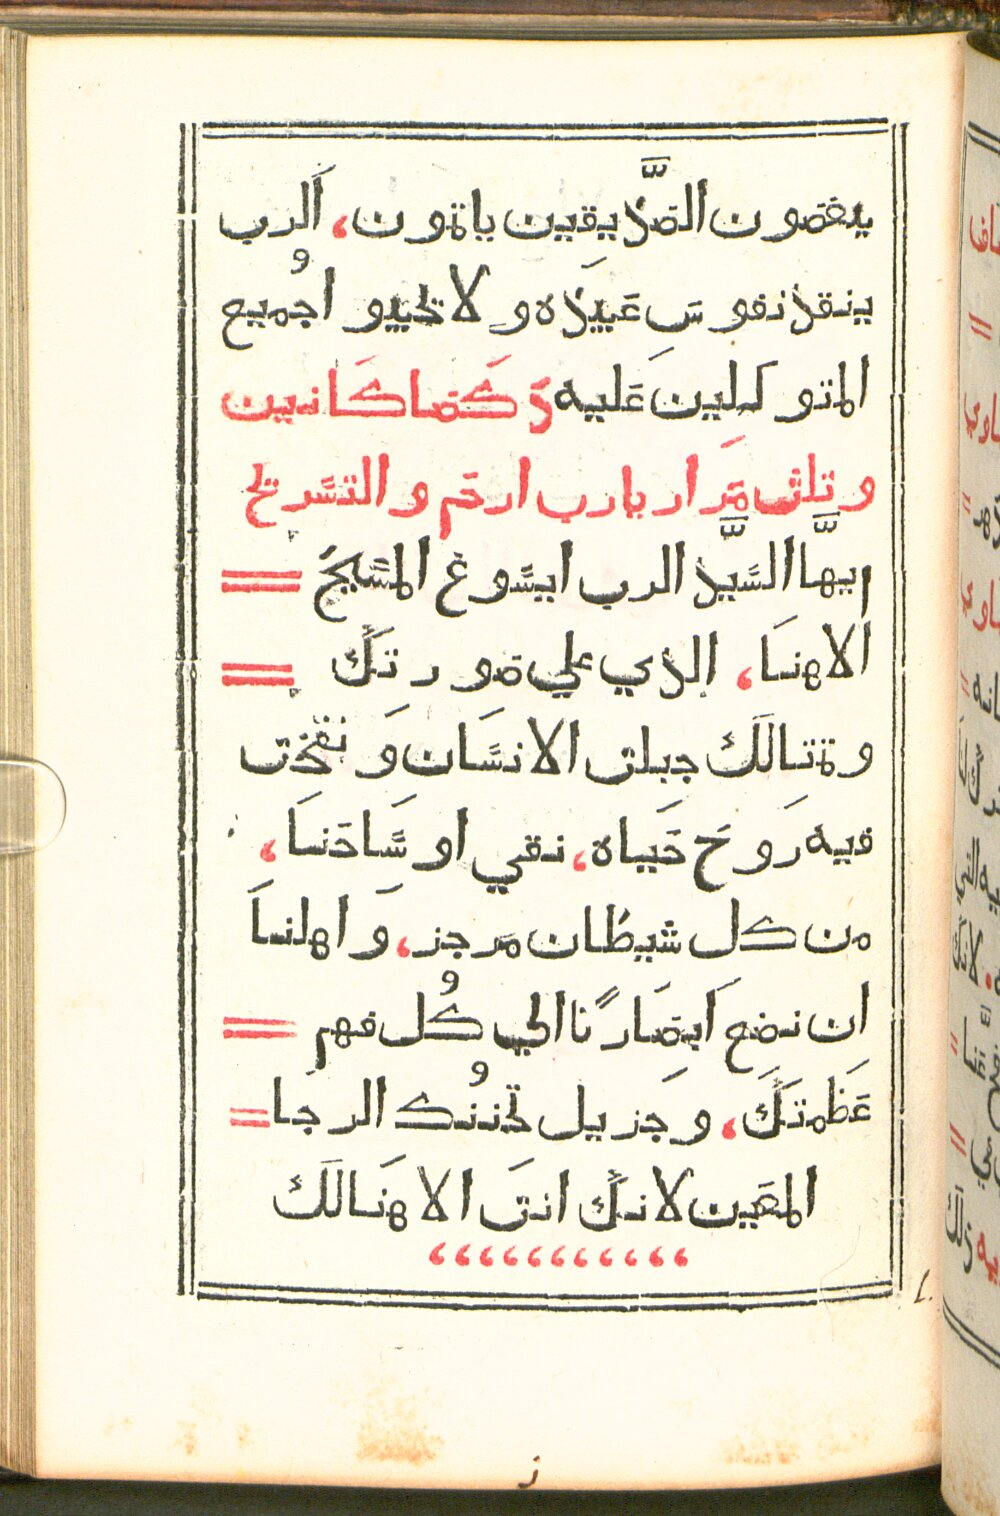 يبغضون الصدّيقين ياثمون، اَلرب
ينقذ نفوسَ عَبيدَه ولا تخيبو اجُميع
المتوكلين عَليه وَكَمَا كَانين
وتلث مَرار يارب ارحَم والتسَريح
ايهَّا السَيّد الرب ايسَوع المسَيحُ
الاهنَا، الذي علي صورتكَ
ومثالكَ جبلت الانسَان وَنفَخت
فيه رَوحَ حَياه، نقي اوسَاخَنَا،
من كل شيطان مَرجز، وَاهلنَا
ان نضع اَبصَارًنا الي كُل فهم
عَظَمتكَ، وجَزيل تحننُك الرجَا
المعَين لانكَ انتَ الاهنَالكَ
،،،،،،،،،،،
ز